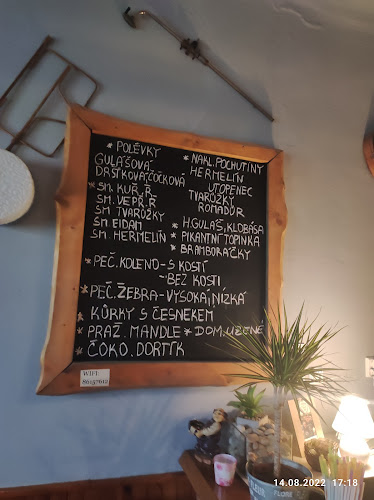 * POLÉVKY
GULÁŠOVÁ
DRŠTKOVÁ, ČOČKOVÁ
* SM. KUŘ. Ř.
SM. VEPŘ. Ř
SM. TVARŮŽKY
SM. EIDAM
SM. HERMELÍN
* NAKL. POCHUTINY
HERMELÍN
UTOPENEC
TVARŮŽKY
ROMADŮR
* H. GULÁŠ, KLOBÁSA
* PIKANTNÍ TOPINKA
* BRAMBORÁČKY
* PEČ. KOLENO - S KOSTÍ
- BEZ KOSTI
* PEČ. ŽEBRA - VYSOKÁ, NÍZKÁ
* KŮRKY S ČESNEKEM
* PRAŽ. MANDLE * DOM. UZENÉ
* ČOKO. DORTÍK
WIFI:
14.08.2022 17:18